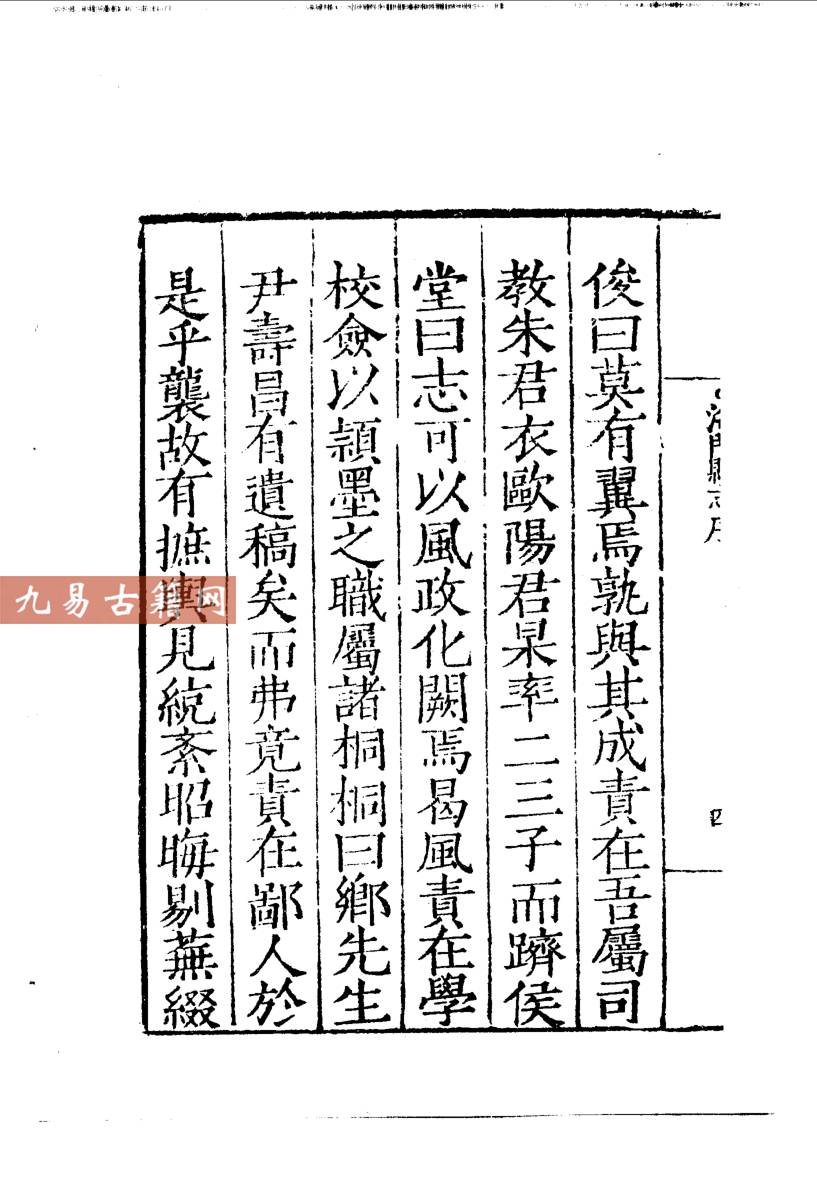 俊曰莫有翼焉孰與其成責在吾屬司
教朱君衣歐陽君杲率二三子而躋侯
堂曰志可以風政化闕焉曷風責在學
校僉以頴墨之職屬諸桐桐曰鄉先生
尹壽昌有遺稿矣而弗竟責在鄙人於
是乎襲故有摭輿見統紊昭晦剔蕪綴
四
九易古籍网